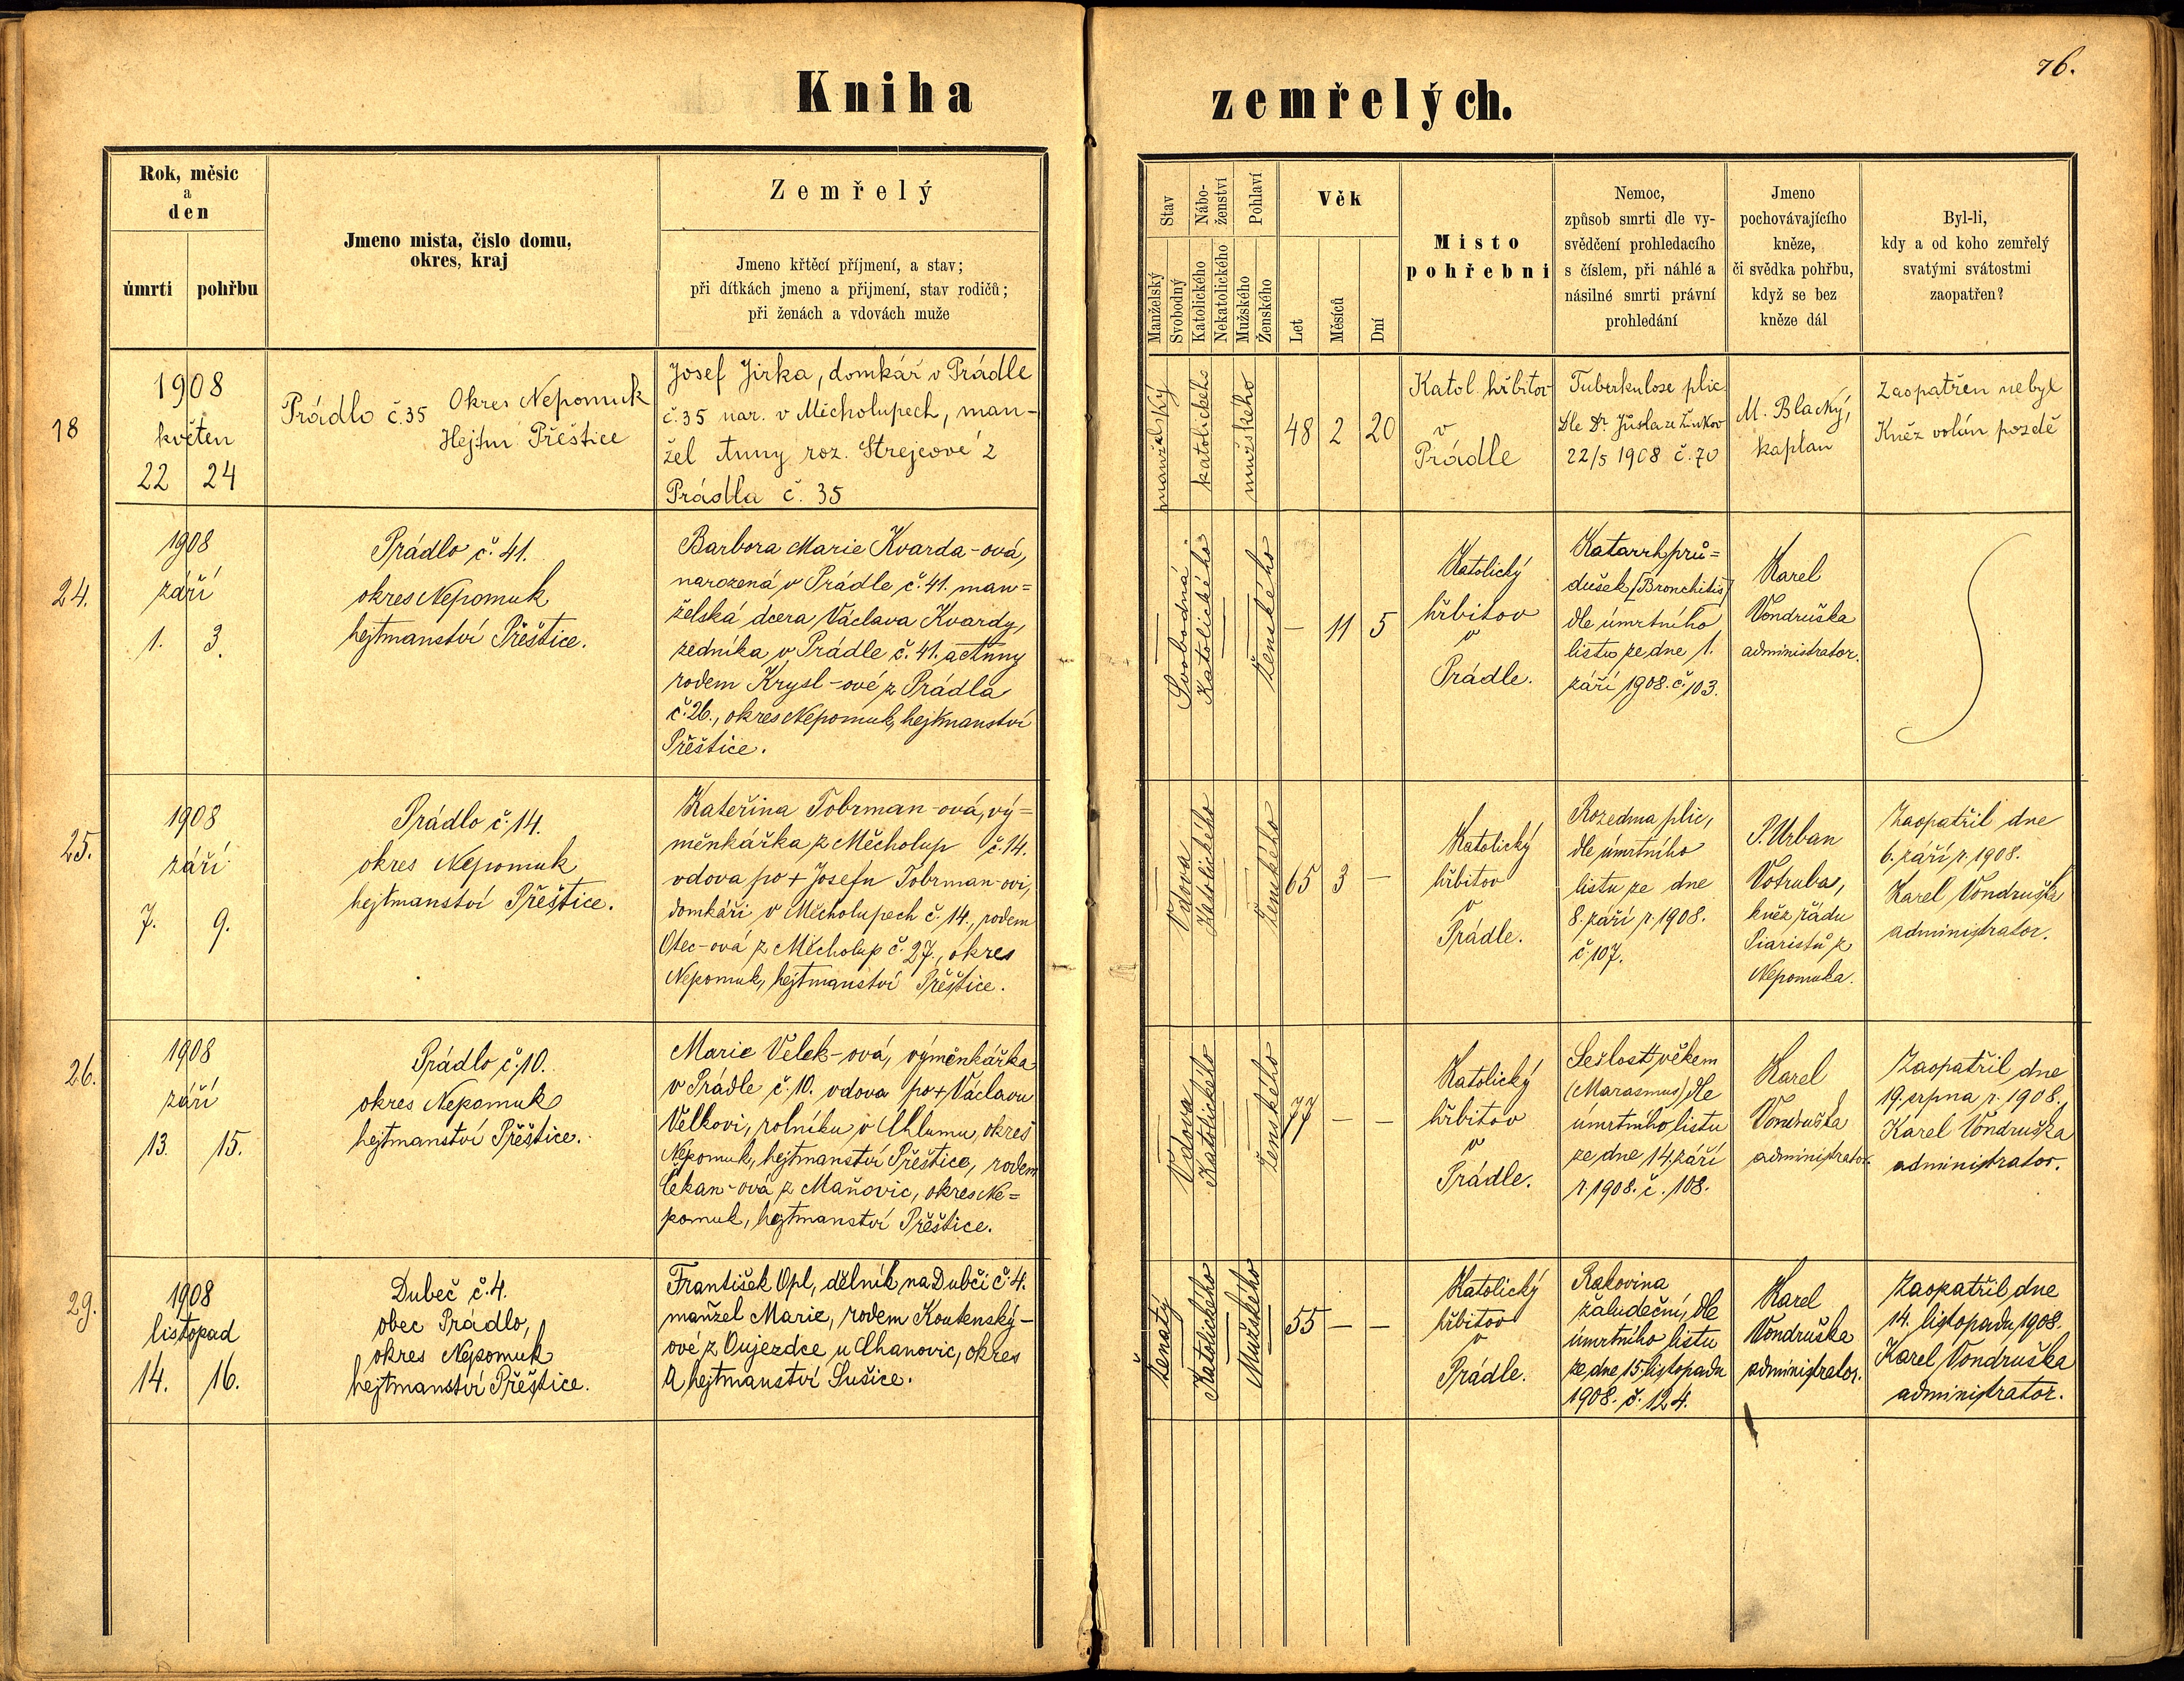 76.
Kniha zemřelých.
Rok, měsic
a
den
úmrti
pohřbu
Jmeno mista, čislo domu,
okres, kraj
Zemřelý
Jmeno křtěcí příjmení, a stav;
při dítkách jmeno a přijmení, stav rodičů;
při ženách a vdovách muže
Stav
Manželský
Svobodný
Nábo-
ženství
Katolického
Nekatolického
Pohlaví
Mužského
Ženského
Věk
Let
Měsíců
Dní
Misto
pohřebni
Nemoc,
způsob smrti dle vy-
svědčení prohledacího
s číslem, při náhlé a
násilné smrti právní
prohledání
Jmeno
pochovávajícího
kněze,
či svědka pohřbu,
když se bez
kněze dál
Byl-li,
kdy a od koho zemřelý
svatými svátostmi
zaopatřen?
18
1908
květen
22 24
Prádlo č. 35
Okres Nepomuk
Hejtm Přeštice
Josef Jirka, domkář v Prádle
č. 35 nar. v Micholupech, man-
žel Anny roz. Strejcové z
Prádla č. 35
manželský
katolického
mužského
48 2 20
Katol. hřbitov
v
Prádle
Tuberkulose plic
Dle Dr.
22/5 1908 č. 70
M. Blacký,
kaplan
Zaopatřen nebyl
Kněz volán pozdě
24.
1908
září
1. 3.
Prádlo č. 41.
okres Nepomuk
hejtmanství Přeštice.
Barbora Marie Kvarda-ová,
narozená v Prádle č. 41. man=
želská dcera Václava Kvardy,
zedníka v Prádle č. 41. a Anny
rodem Krysl-ové z Prádla
č. 26., okres Nepomuk, hejtmanství
Přeštice.
Svobodná
Katolického
Ženského
— 11 5
Katolický
hřbitov
v
Prádle.
Katarrh prů=
dušek (Bronchitis)
dle úmrtního
listu ze dne 1.
září 1908. č. 103.
Karel
Vondruška
administrator.
25.
1908
září
7. 9.
Prádlo č. 14.
okres Nepomuk
hejtmanství Přeštice.
Kateřina Tobrman-ová, vý=
měnkářka z Měcholup č. 14.
vdova po + Josefu Tobrman-ovi,
domkáři v Měcholupech č. 14., rodem
Otec-ová z Měcholup č. 27., okres
Nepomuk, hejtmanství Přeštice.
Vdova
Katolického
Ženského
65 3 —
Katolický
hřbitov
v
Prádle.
Rozedma plic,
dle úmrtního
listu ze dne
8. září r. 1908.
č. 107.
P. Urban
Votruba,
kněz řádu
Piaristů z
Nepomuka.
Zaopatřil dne
6. září r. 1908.
Karel Vondruška
administrator.
26.
1908
září
13. 15.
Prádlo č. 10.
okres Nepomuk
hejtmanství Přeštice.
Marie Velek-ová, výměnkářka
v Prádle č. 10. vdova po + Václavu
Velkovi, rolníku v Chlumu, okres
Nepomuk, hejtmanství Přeštice, rodem
Čekan-ová z Maňovic, okres Ne=
pomuk, hejtmanství Přeštice.
Vdova
Katolického
Ženského
77 — —
Katolický
hřbitov
v
Prádle.
Sešlost věkem
(Marasmus) dle
úmrtního listu
ze dne 14. září
r. 1908. č. 108.
Karel
Vondruška
administrator.
Zaopatřil dne
19. srpna r. 1908.,
Karel Vondruška
administrator.
29.
1908
listopad
14. 16.
Dubeč č. 4.
obec Prádlo,
okres Nepomuk
hejtmanství Přeštice.
František Opl, dělník na Dubči č. 4.
manžel Marie, rodem Koutenský-
ové z Oujezdce u Chanovic, okres
a hejtmanství Sušice.
Ženatý
Katolického
Mužského
55 — —
Katolický
hřbitov
v
Prádle.
Rakovina
žaludeční, dle
úmrtního listu
ze dne 15. listopadu
1908. č. 124.
Karel
Vondruška
administrator.
Zaopatřil dne
14. listopadu 1908.
Karel Vondruška
administrator.